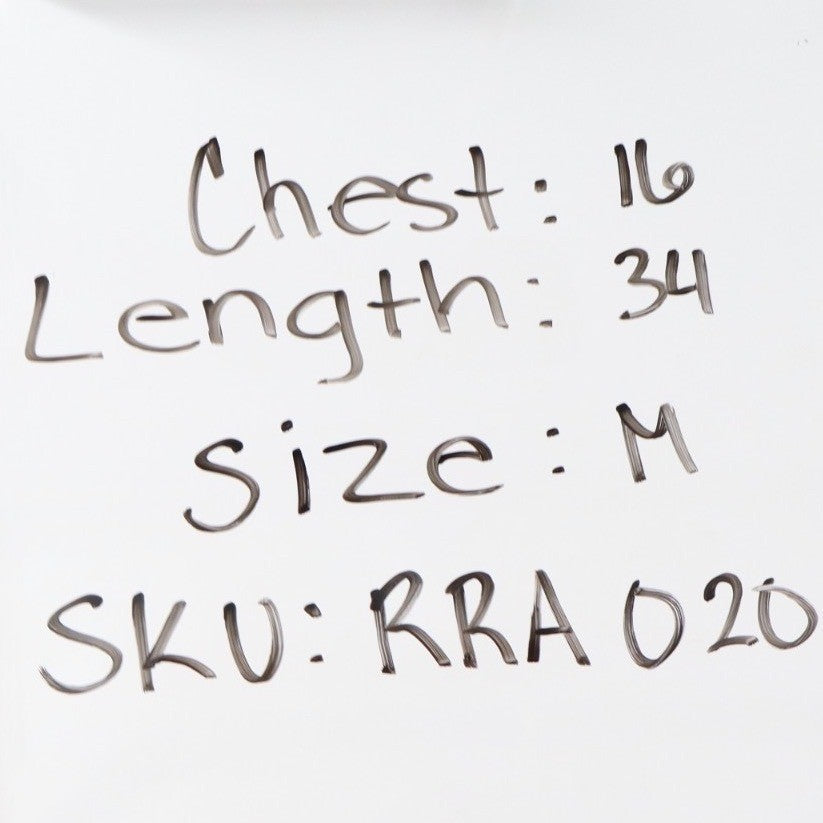 Chest: 16
Length: 34
Size: M
SKU: RRA 020